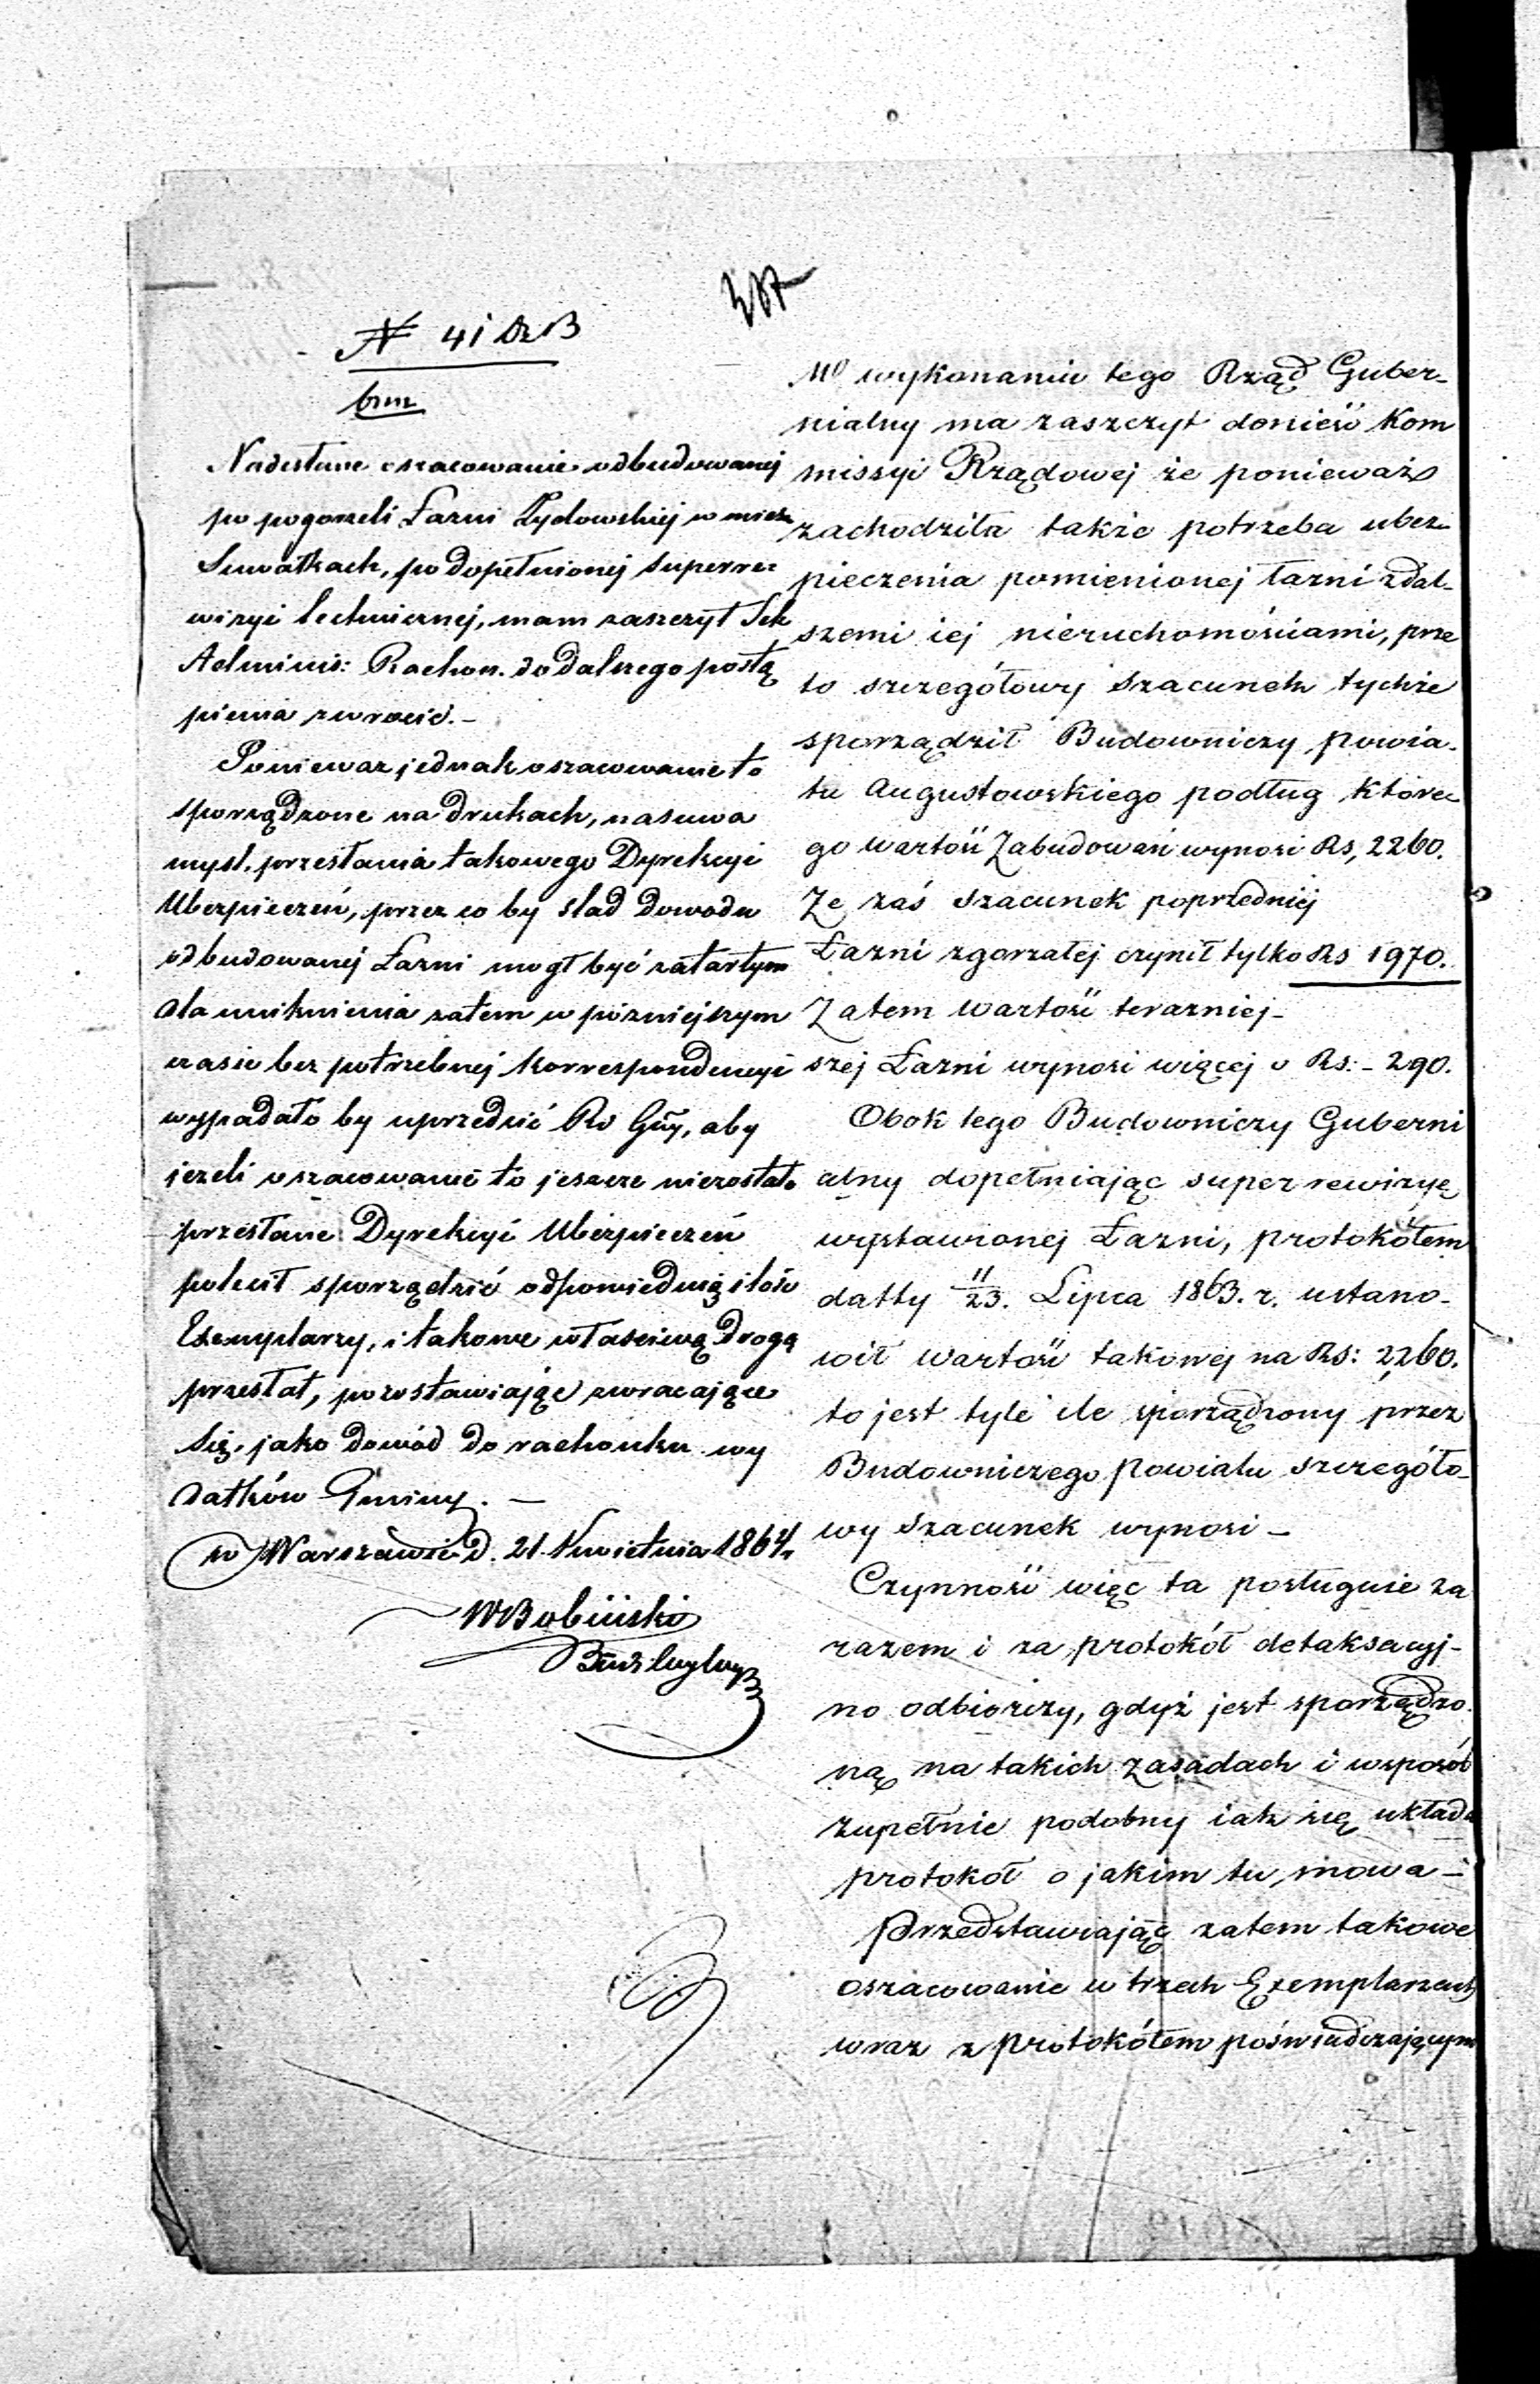 N 41 Dz B
Nadesłane oszacowanie odbudowanej
po pogorzeli Łazni Żydowskiej w mieś.
Suwałkach, po dopełnionej superre-
wizyi technicznej, mam zaszczyt Sek
Adminis: Rachon. do dalszego postą
pienia zwrócić. –
Ponieważ jednak oszacowanie to
sporządzone na drukach, nasuwa
mysl, przesłania takowego Dyrekcyi
Ubezpieczeń, przez co by slad dowodu
odbudowanej Łazni mogł być zatartym
dla uniknienia zatem w pózniejszym
czasie bez potrzebnej korrespondencyi
wypadało by uprzedzić Rd Guȳ, aby
jezeli oszacowanie to jeszcze niezostało
przesłane Dyrekcyi Ubezpieczeń
polecił sporządzić odpowiednią ilość
Exemplarzy, i takowe właściwą drogą
przesłał, pozostawiając zwracające
się, jako dowód do rachunku wy
datków Gminy. –
w Warszawie d. 21 Kwietnia 1864
WBobiński
W wykonaniu tego Rząd Guber-
nialny ma zaszczyt donieść Kom
missyi Rządowej że ponieważ
zachodziła także potrzeba ubez-
pieczenia pomienionej łazni z dal-
szemi iej nieruchomościami, prze
to szczegółowy szacunek tychże
sporządził Budowniczy powia-
tu Augustowskiego podług które-
go wartość Zabudowań wynosi Rs, 2260.
Że zaś szacunek poprzedniej
Łazni zgorzałej czynił tylko Rs 1970.
Zatem wartość teraźniej-
szej Łazni wynosi więcej o Rs: - 290.
Obok tego Budowniczy Guberni
alny dopełniając superrewizyę
wystawionej Łazni, protokółem
datty 11/23. Lipca 1863. r. ustano-
wił wartość takowej na Rs: 2,260.
to jest tyle ile sporządzony przez
Budowniczego powiatu szczegóło-
wy szacunek wynosi –
Czynność więc ta posługuie za
razem i za protokół detaksacyj-
no odbiorczy, gdyż jest sporządzo
ną na takich zasadach i w sposób
zupełnie podobny iak się układa
protokół o jakim tu mowa –
Przedstawiając zatem takowe
oszacowanie w trzech Exemplarzach
wraz z protokółem poświadczającym